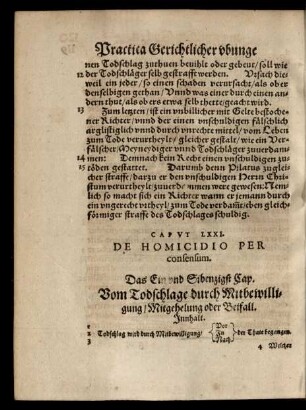 Practica Gerichtlicher vbunge
nen Todschlag zuthuen beuihlt oder gebeut/ soll wie
12 der Todschläger selb gestrafft werden. Vrsach die-
weil ein jeder/ so einen schaden verursacht/ als ober
denselbigen gethan/ Vnnd was einer durch einen an-
dern thut/ als ob ers etwa selb thette/ geacht wird.
13 Zum letzten/ ist ein vnbillicher mit Gelte bestoche-
ner Richter/ wann der einen vnschuldigen fälschlich
arglistiglich vnnd durch vnrechte mittel/ vom Leben
zum Tode verurtheylt/ gleicher gestalt/ wie ein Ver-
fälscher/ Meyneydiger vnnd Todschläger zuuerdam-
14 men: Demnach kein Recht einen vnschuldigen zu-
15 tödten gestattet. Darumb denn Pilatus zugleis
cher straffe/ darzu er den vnschuldigen Herrn Chri-
stum verurtheylt/ zuuerdammen were gewesen: Nem-
lich so macht sich ein Richter wann er jemann durch
ein vngerecht vrtheyl/ zum Tode verdamlichen gleich-
förmiger straffe des Todschlages schuldig.
CAPVT LXXI.
DE HOMICIDIO PER
consensum.
Das Ein vnd Sibenzigst Cap.
Vom Todschlage durch Mitbewilli-
gung/ Mitgehelung oder Beifall.
Innhalt.
1 Vor
2 Todschlag wird durch Mitbewilligung/ In der Thate begangen.
3 Nach
4 Welcher